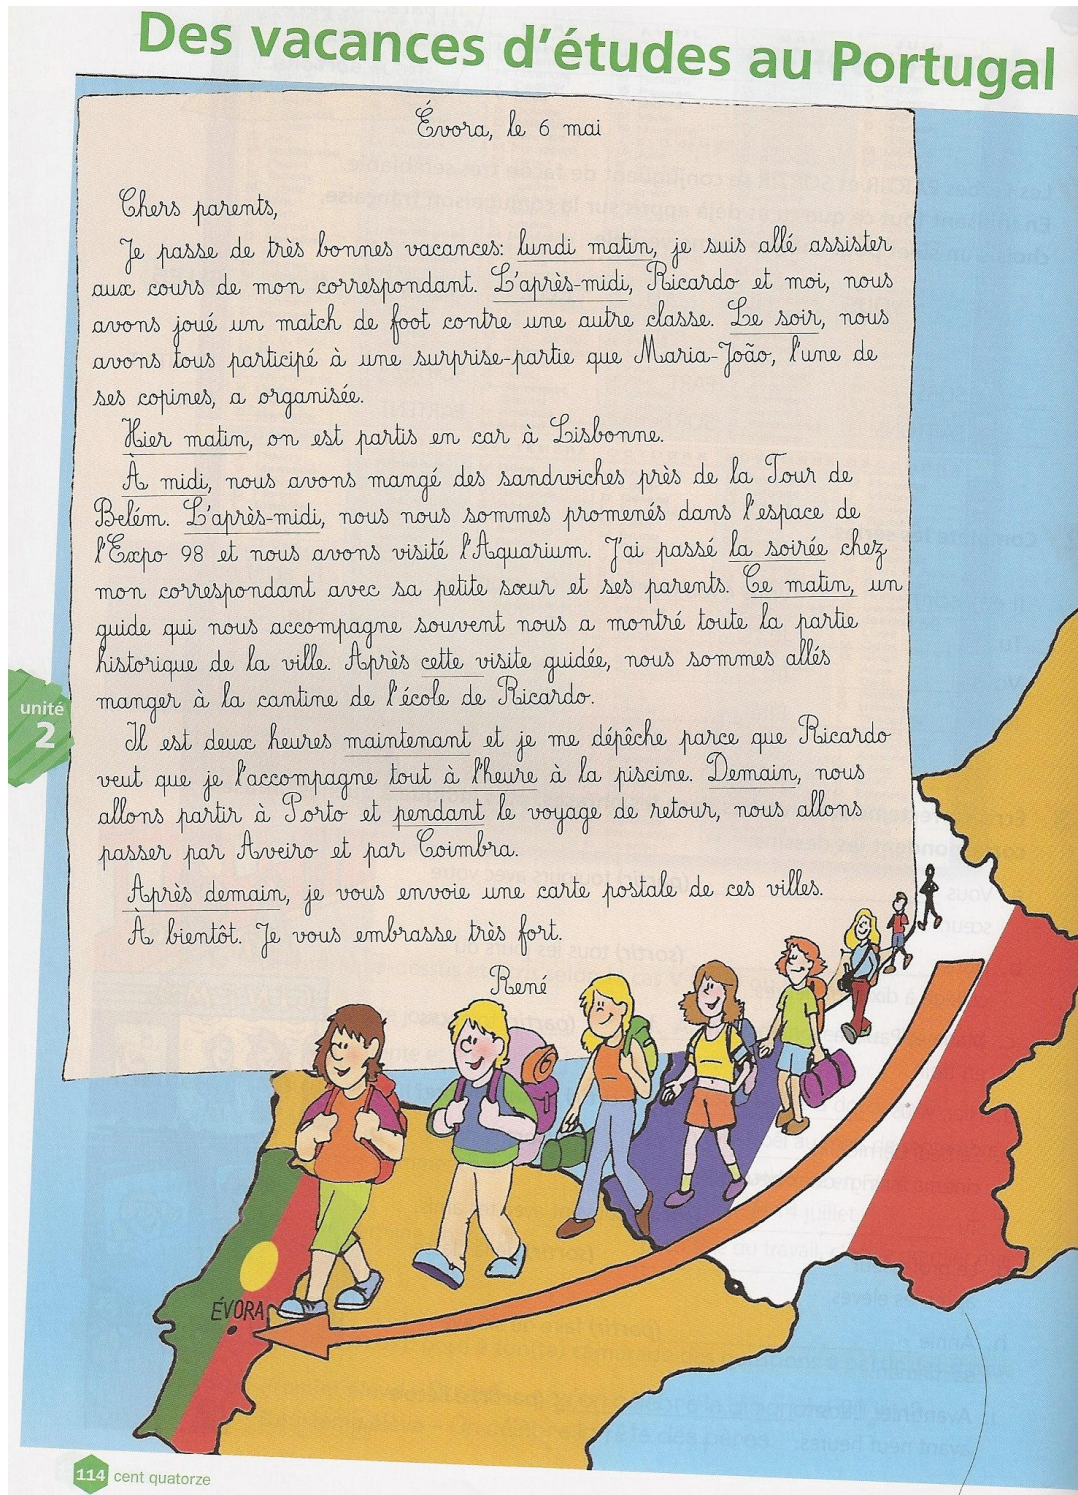 Des vacances d'études au Portugal
Évora, le 6 mai
Chers parents,
Je passe de très bonnes vacances: lundi matin, je suis allé assister
aux cours de mon correspondant. L'après-midi, Ricardo et moi, nous
avons joué un match de foot contre une autre classe. Le soir, nous
avons tous participé à une surprise-partie que Maria-João, l'une de
ses copines, a organisée.
Hier matin, on est partis en car à Lisbonne.
À midi, nous avons mangé des sandwiches près de la Tour de
Belém. L'après-midi, nous nous sommes promenés dans l'espace de
l'Expo 98 et nous avons visité l'Aquarium. J'ai passé la soirée chez
mon correspondant avec sa petite sœur et ses parents. Ce matin, un
guide qui nous accompagne souvent nous a montré toute la partie
historique de la ville. Après cette visite guidée, nous sommes allés
manger à la cantine de l'école de Ricardo.
Il est deux heures maintenant et je me dépêche parce que Ricardo
veut que je l'accompagne tout à l'heure à la piscine. Demain, nous
allons partir à Porto et pendant le voyage de retour, nous allons
passer par Aveiro et par Coimbra.
Après demain, je vous envoie une carte postale de ces villes.
À bientôt. Je vous embrasse très fort.
René
unité
2
ÉVORA
114 cent quatorze